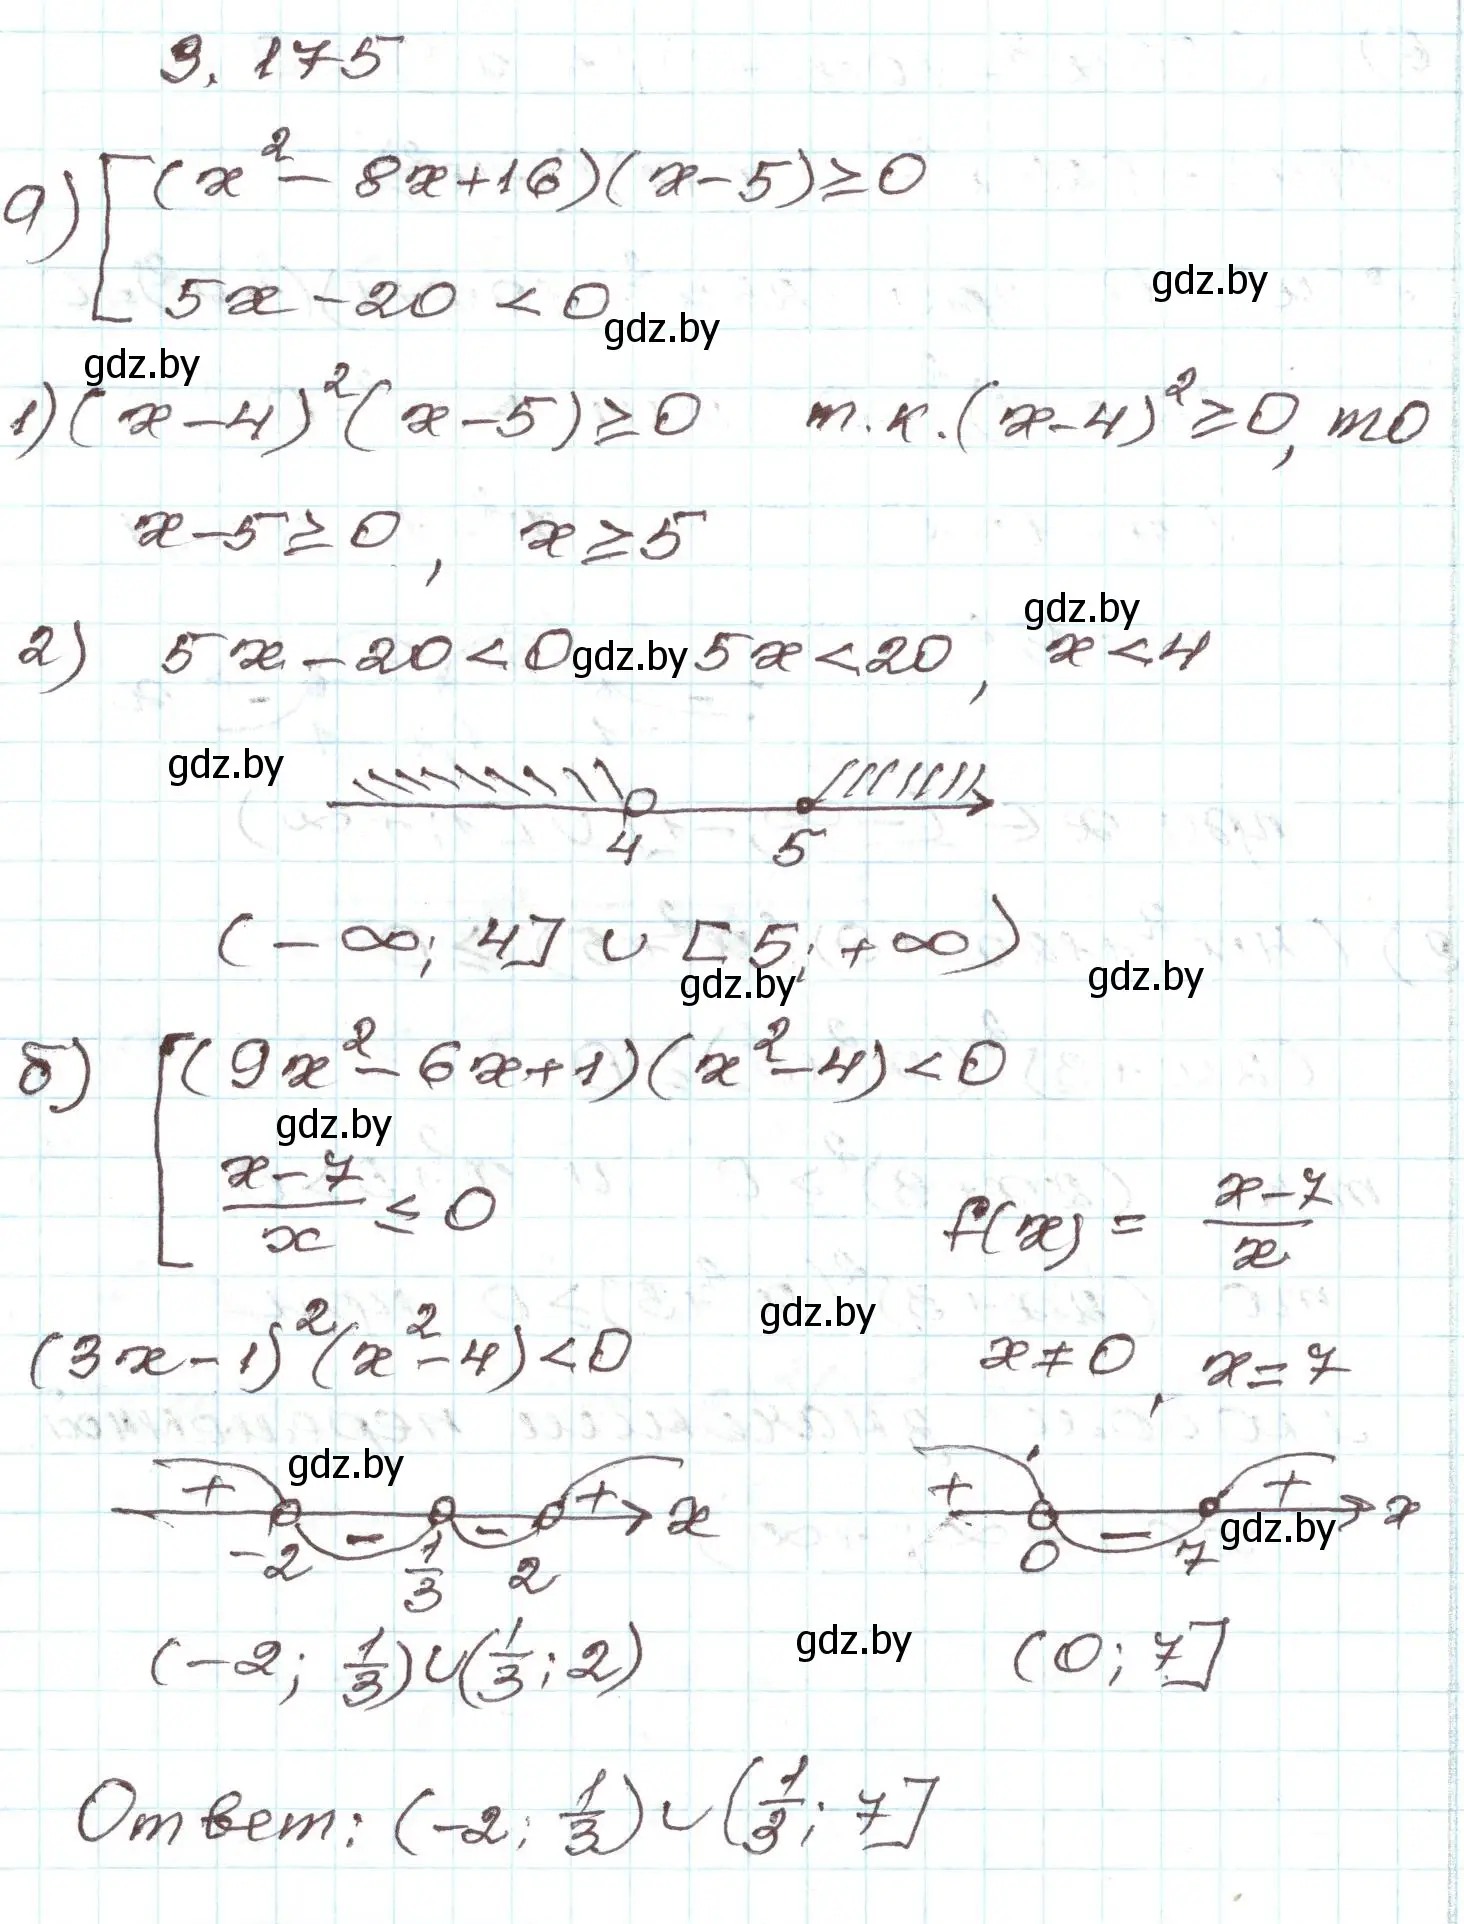 3.175
а) [ (x² - 8x + 16)(x - 5) ≥ 0
5x - 20 < 0
gdz.by
gdz.by
gdz.by
1) (x - 4)² (x - 5) ≥ 0 т.к. (x - 4)² ≥ 0, то
x - 5 ≥ 0, x ≥ 5
gdz.by
2) 5x - 20 < 0 gdz.by 5x < 20, x < 4
gdz.by
4 5
(-∞; 4] ∪ [5; +∞)
gdz.by gdz.by
б) [ (9x² - 6x + 1)(x² - 4) < 0
gdz.by
(x - 7)/x ≤ 0 f(x) = (x - 7)/x
gdz.by
(3x - 1)² (x² - 4) < 0 x ≠ 0, x = 7
gdz.by
+ - - + x + - + x
gdz.by
-2 1/3 2 0 7
(-2; 1/3) ∪ (1/3; 2) gdz.by (0; 7]
Ответ: (-2; 1/3) ∪ (1/3; 7]